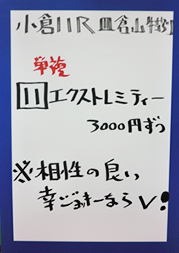 小倉11R 皿倉山特別
単複
11 エクストレミティー
3000円ずつ
※相性の良い
幸ジョッキーならV!